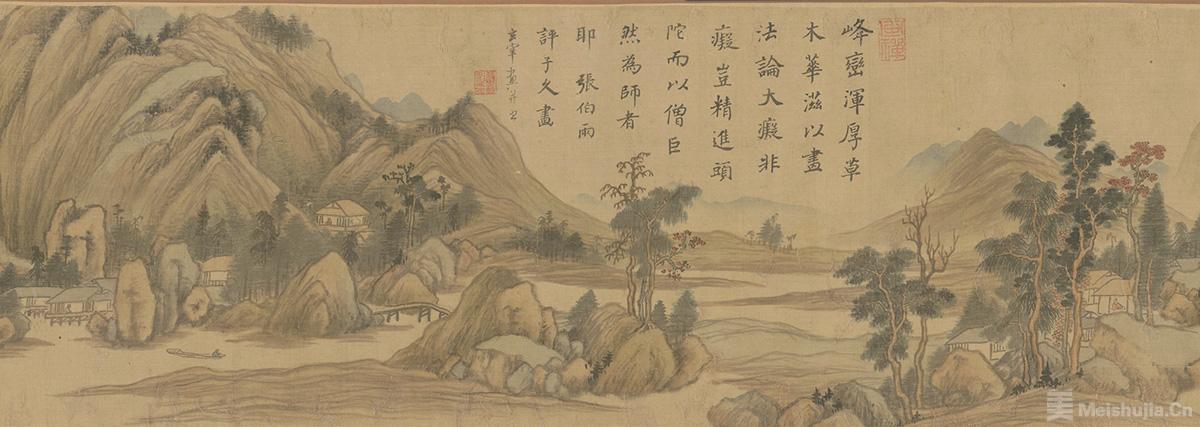 峰巒渾厚草
木華滋以畫
法論大癡非
癡豈精進頭
陀而以僧巨
然為師者
耶 張伯雨
評子久畫
玄宰畫并書
美 Meishujia.Cn